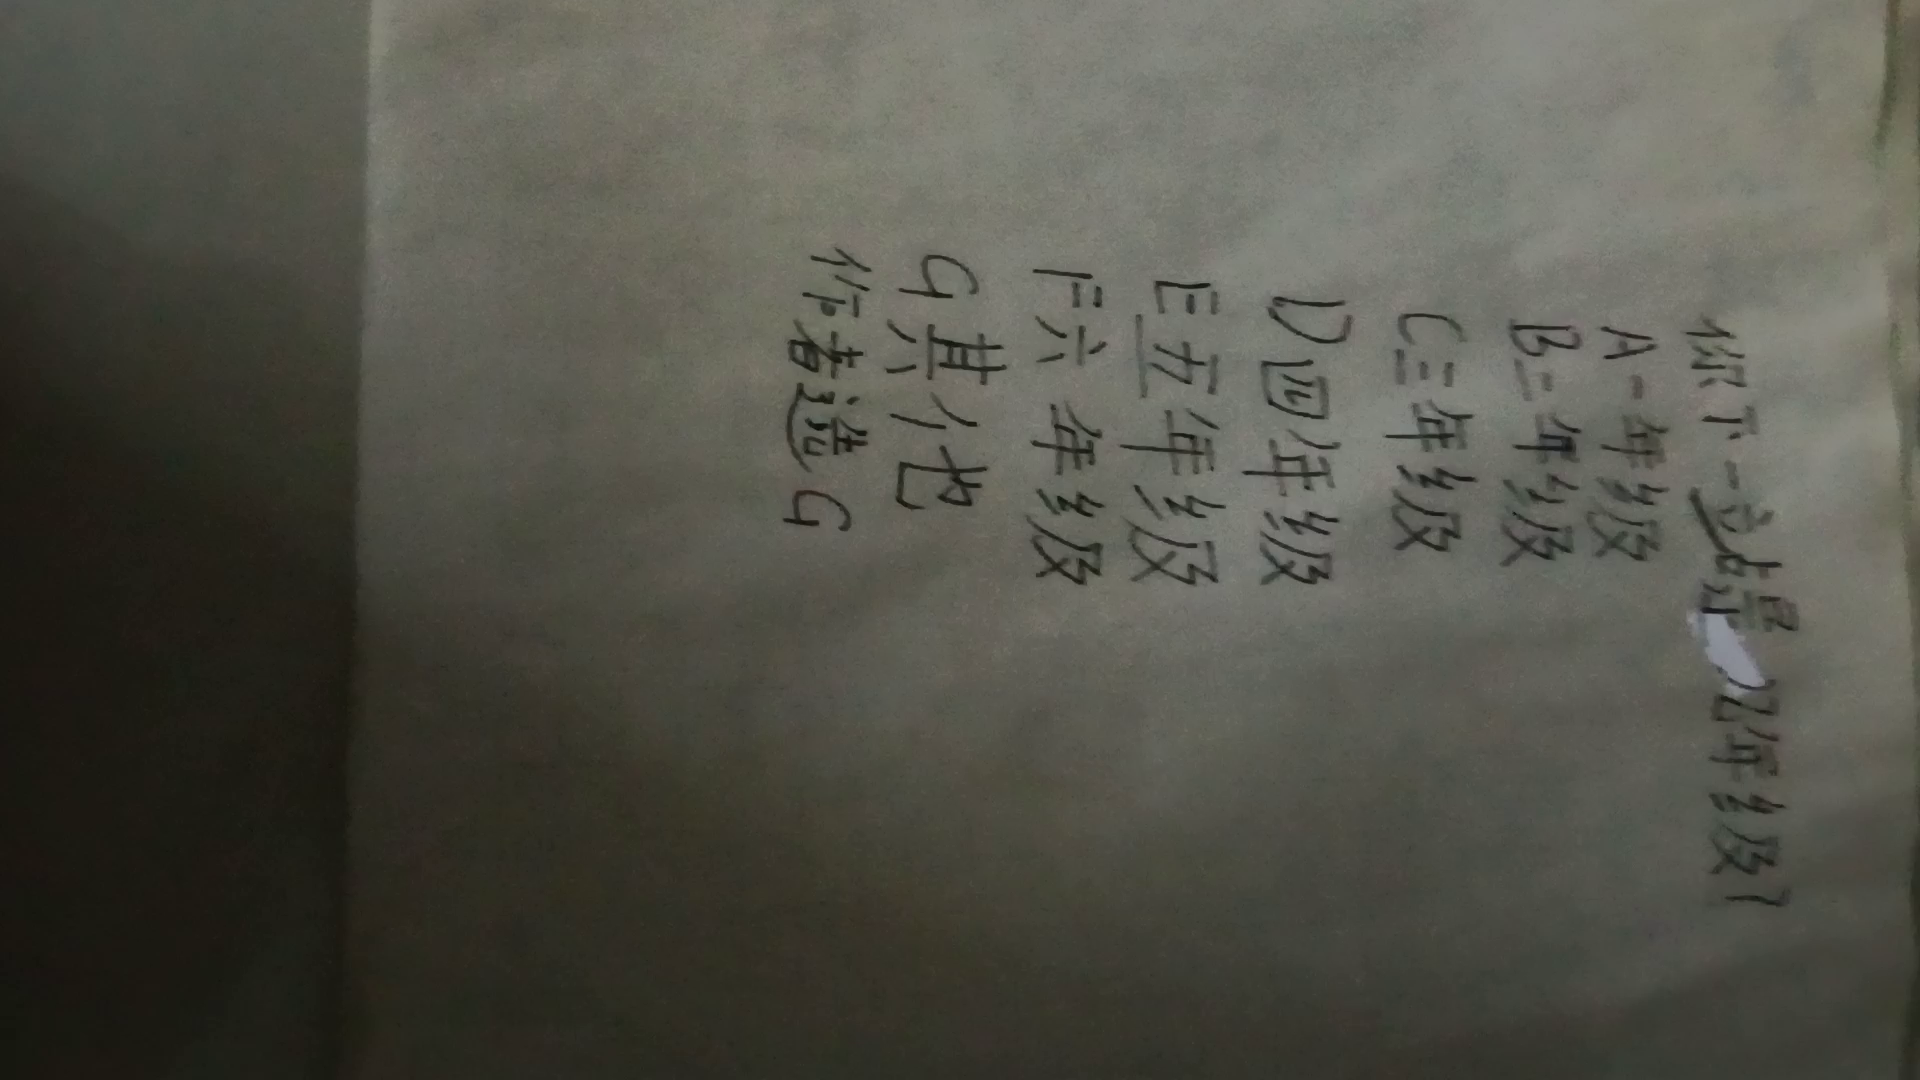 你下一站是几年级?
A一年级
B二年级
C三年级
D四年级
E五年级
F六年级
G其他
作者造G